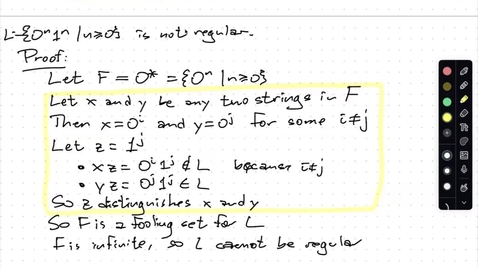 L={0ⁿ1ⁿ | n≥0} is not regular.
Proof:
Let F = 0* = {0ⁿ | n≥0}
Let x and y be any two strings in F
Then x=0ⁱ and y=0ʲ for some i≠j
Let z = 1ʲ
• xz = 0ⁱ1ʲ ∉ L because i≠j
• yz = 0ʲ1ʲ ∈ L
So z distinguishes x and y
So F is a fooling set for L
F is infinite, so L cannot be regular